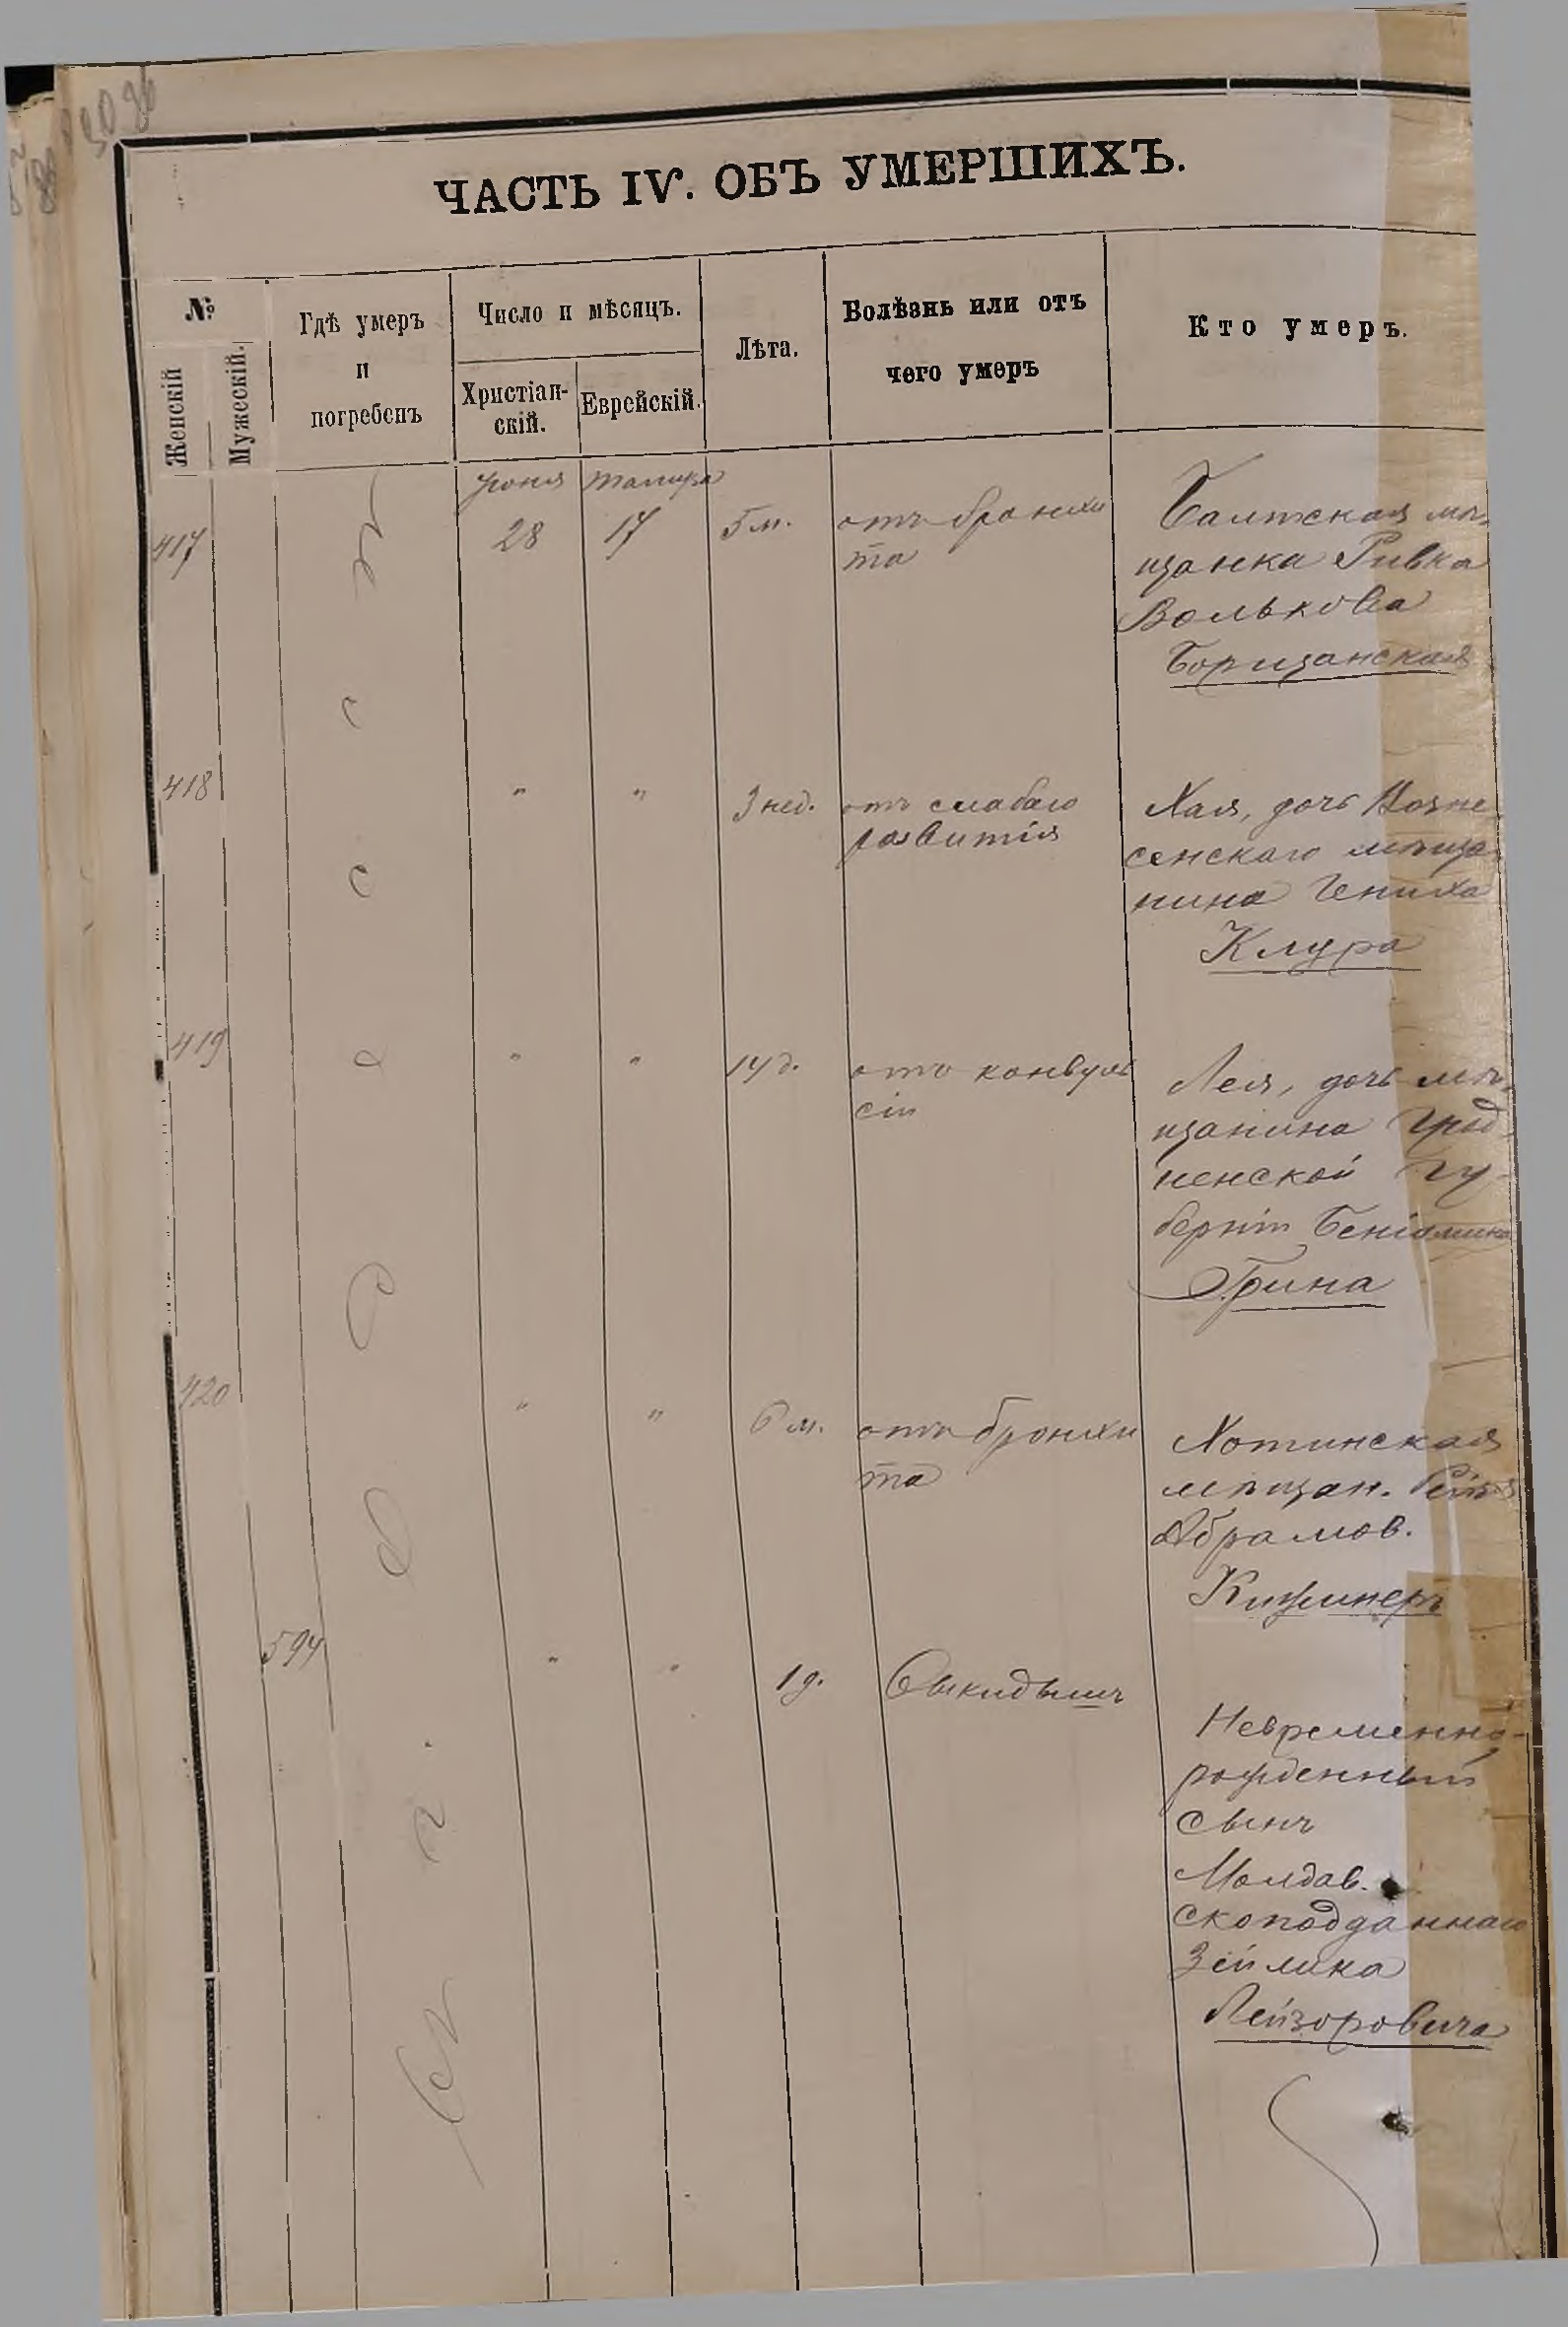 ЧАСТЬ IV. ОБЪ УМЕРШИХЪ.
№
Женскій
Мужескій.
Гдѣ умеръ
и
погребенъ
Число и мѣсяцъ.
Христіан-
скій.
Еврейскій.
Лѣта.
Болѣзнь или отъ
чего умеръ
Кто умеръ.
въ г. Одессѣ
417
Іюня
28
Тамуза
17
5 м.
отъ бронхи
та
Балтская мѣ-
щанка Ривка
Волькова
Борщанская
418
"
"
3 нед.
отъ слабаго
развитія
Хая, дочь Возне
сенскаго мѣща-
нина Гениха
Клура
419
"
"
14 д.
отъ конвуль
сіи
Лея, дочь мѣ-
щанина Грод-
ненской гу-
берніи Беніомина
Грина
420
"
"
6 м.
отъ бронхи
та
Хотинская
мѣщан. Рейзя
Абрамов.
Кижинеръ
594
"
"
1 д.
Выкидышъ
Невременно-
рожденный
сынъ
Молдав.
скоподданнаго
Зейлика
Лейзоровича